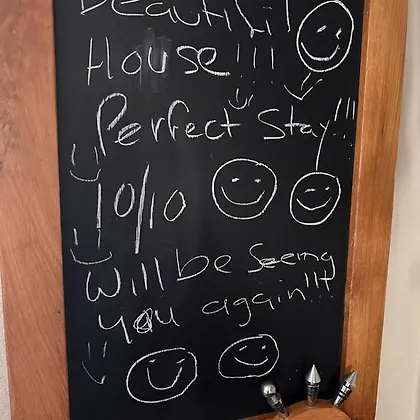 Beautiful
House!!!
Perfect Stay!!!
10/10
Will be Seeing
you again!!!